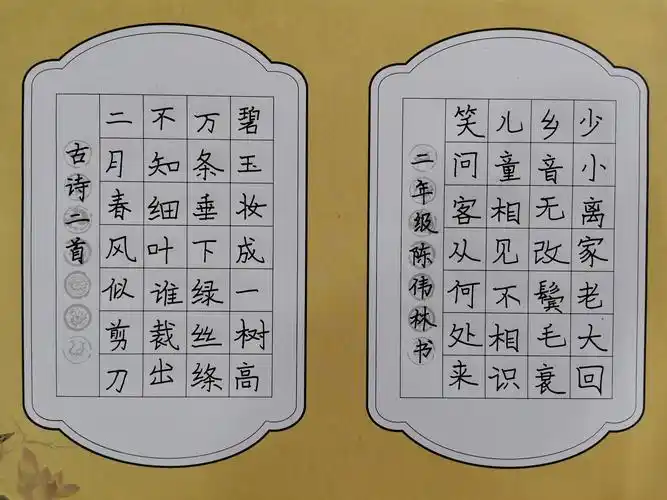 碧玉妆成一树高
万条垂下绿丝绦
不知细叶谁裁出
二月春风似剪刀
古诗二首
少小离家老大回
乡音无改鬓毛衰
儿童相见不相识
笑问客从何处来
二年级陈伟林书